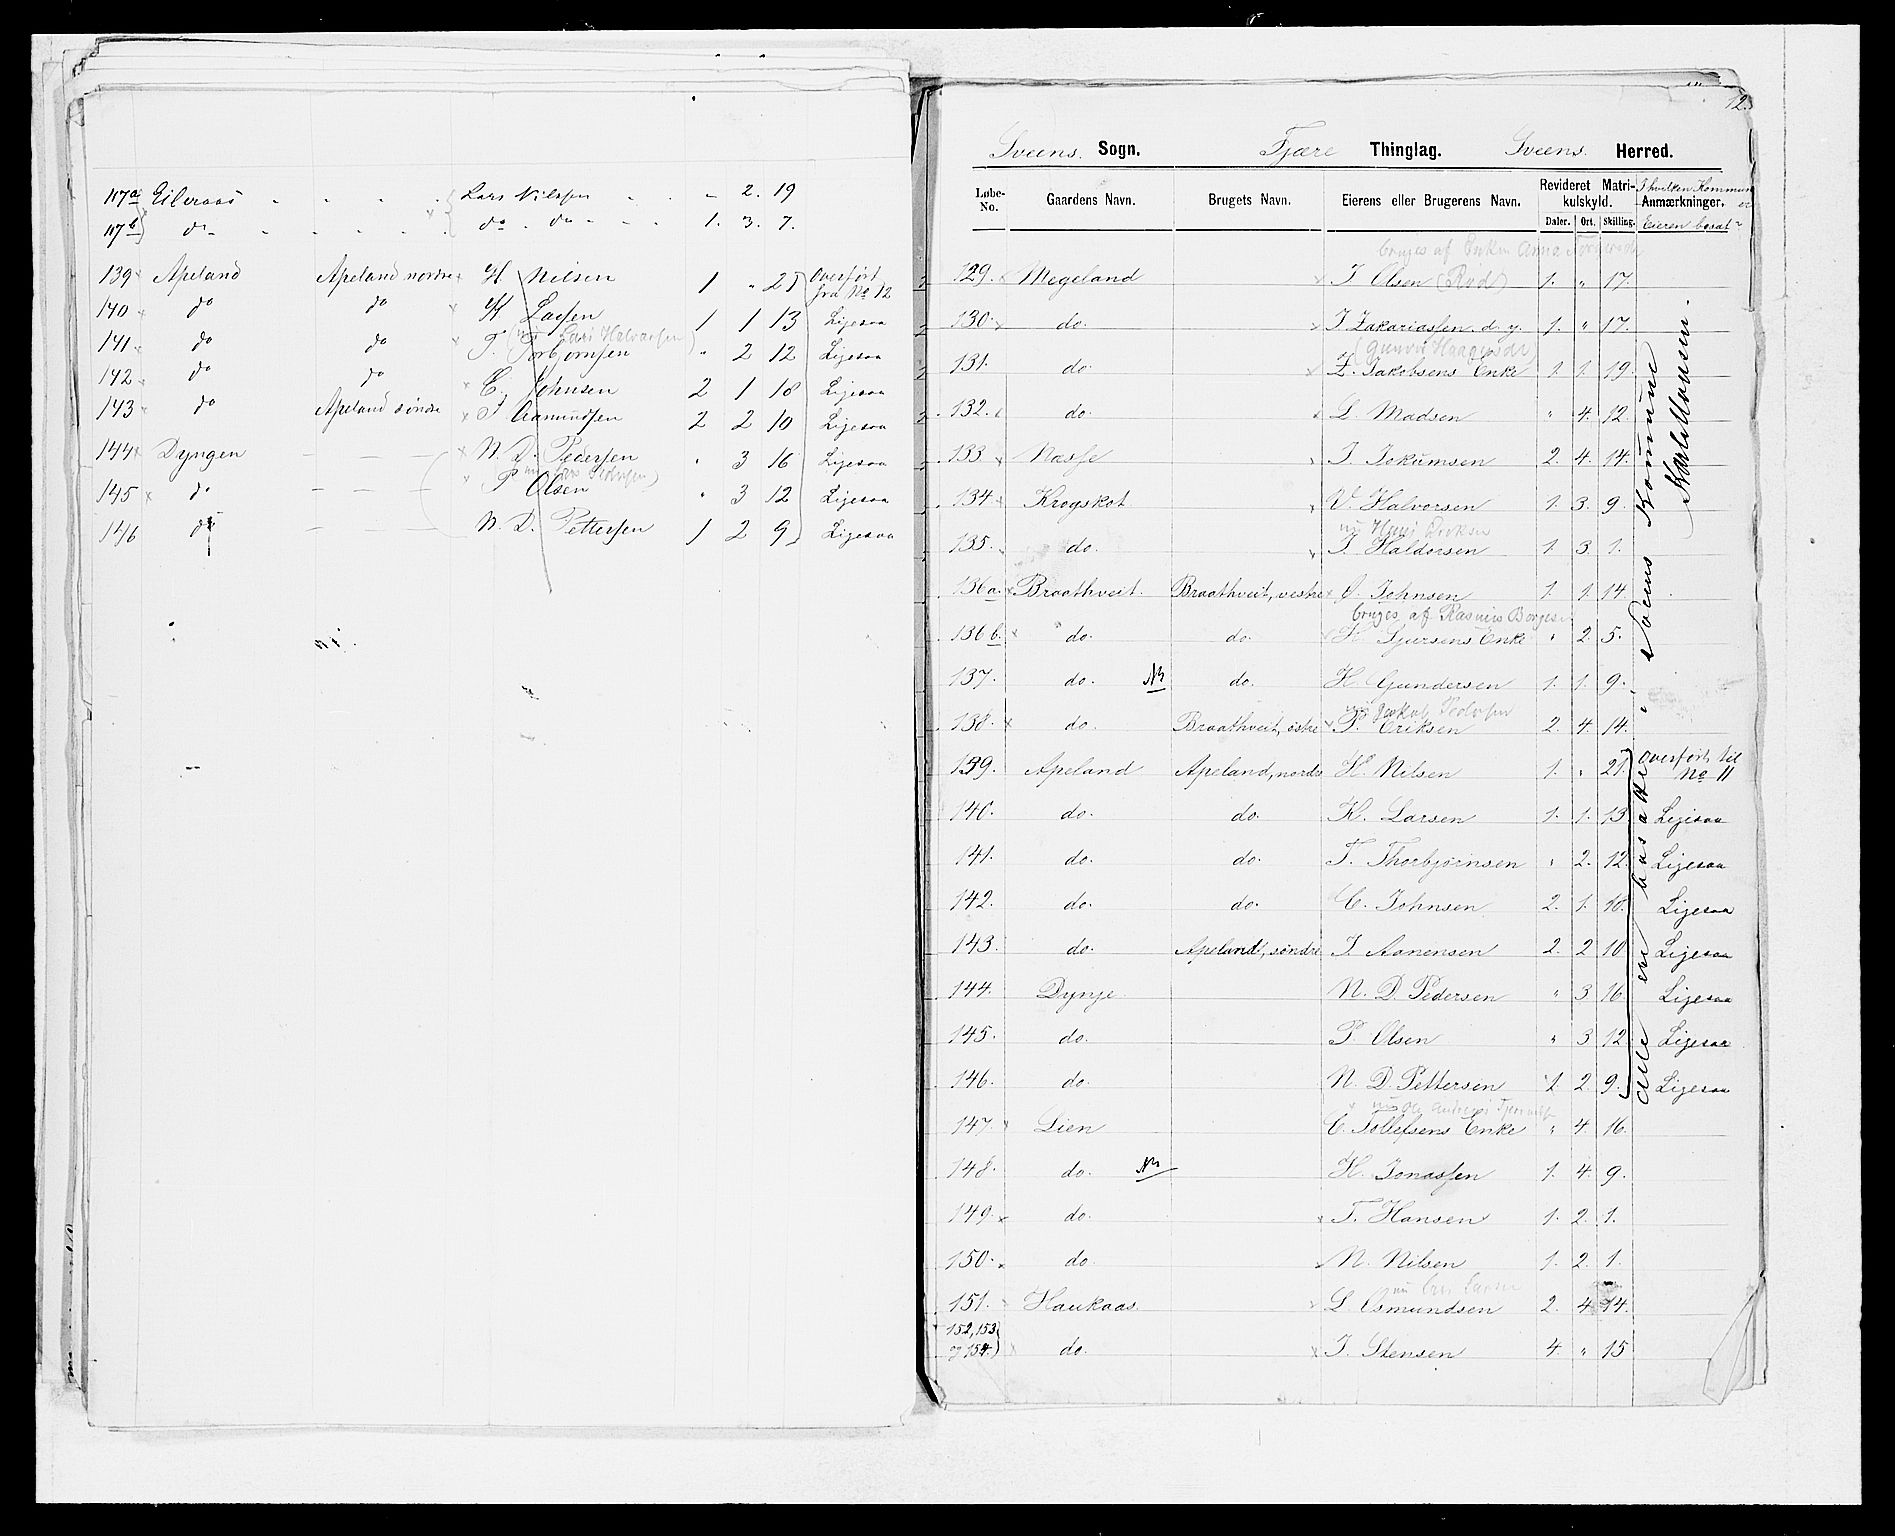 117a Eileraas " " " " Lars Nilssen " " " 2. 19
117b do " " " " do. do " " 1. 3. 7.
139 Apeland Apeland nordre H. Nilsen 1 " 21 Overført fra No 12
140 do do K Larsen 1 1 13 Ligesaa
(nu Lars Halvorsen)
141 do do T. Torbjørnsen " 2 12 Ligesaa
142 do do C. Johnsen 2 1 18 Ligesaa
143 do Apeland søndre I Aamundsen 2 2 10 Ligesaa
144 Dyngen — — — N. D. Pedersen " 3 16 Ligesaa
145 do — — — P Olsen " 3 12 Ligesaa
146 do — — N. D. Pettersen 1 2 9 Ligesaa
12.
Sveens Sogn. Fjære Thinglag. Sveens Herred.
Løbe-No. Gaardens Navn. Brugets Navn. Eierens eller Brugerens Navn. Revideret Matrikulskyld. Daler. Ort. Skilling. I hvilken Kommune er Anmærkninger. Eieren bosat?
bruges af Enken Anna
129. Megeland I Olsen (Rød) 1. " 17.
130. do. I Zakariassen d. y. 1. " 17.
131. do. Z. Jakobsens Enke 1. 1. 19.
132. do. L. Madsen " 4. 12.
133 Næsse I. Jokumsen 2. 4. 14.
134 Krogskot V. Halvorsen 1. 3. 9.
135. do. I. Haldorsen 1. 3. 1.
136a. Braathveit. Braathveit, vestre O. Johnsen 1. 1. 14
bruges af Rasmus Børgesen
136b. do. do. H. Sjursens Enke " 2. 5.
137. do. do. H. Gundersen 1. 1. 9.
138. do. Braathveit, østre P. Eriksen 2. 4. 14.
139. Apeland Apeland, nordre H. Nilsen 1. " 21. Overført til No 11
140. do. do. K. Larsen 1. 1. 13. Ligesaa
141. do. do. T. Thorbjørnsen " 2. 12. Ligesaa
142. do. do. C. Johnsen 2. 1. 18. Ligesaa
143. do. Apelandt, søndre I Aanensen 2. 2 10 Ligesaa
144. Dynje. N. D. Pedersen " 3 16 Ligesaa
145. do. P. Olsen " 3 12. Ligesaa
146. do. N. D. Pettersen 1. 2. 9. Ligesaa
147. Lien C. Tollefsens Enke " 4. 16.
148. do. H. Jonassen 1. 4. 9.
149. do. T. Hansen 1. 2. 1.
150. do. N. Nilsen 1. 2. 1.
151. Haukaas L Osmundsen 2. 4 14.
152, 153 og 154. do. I. Stensen 4. " 15
alle ere bosatte i Sveens Kommune